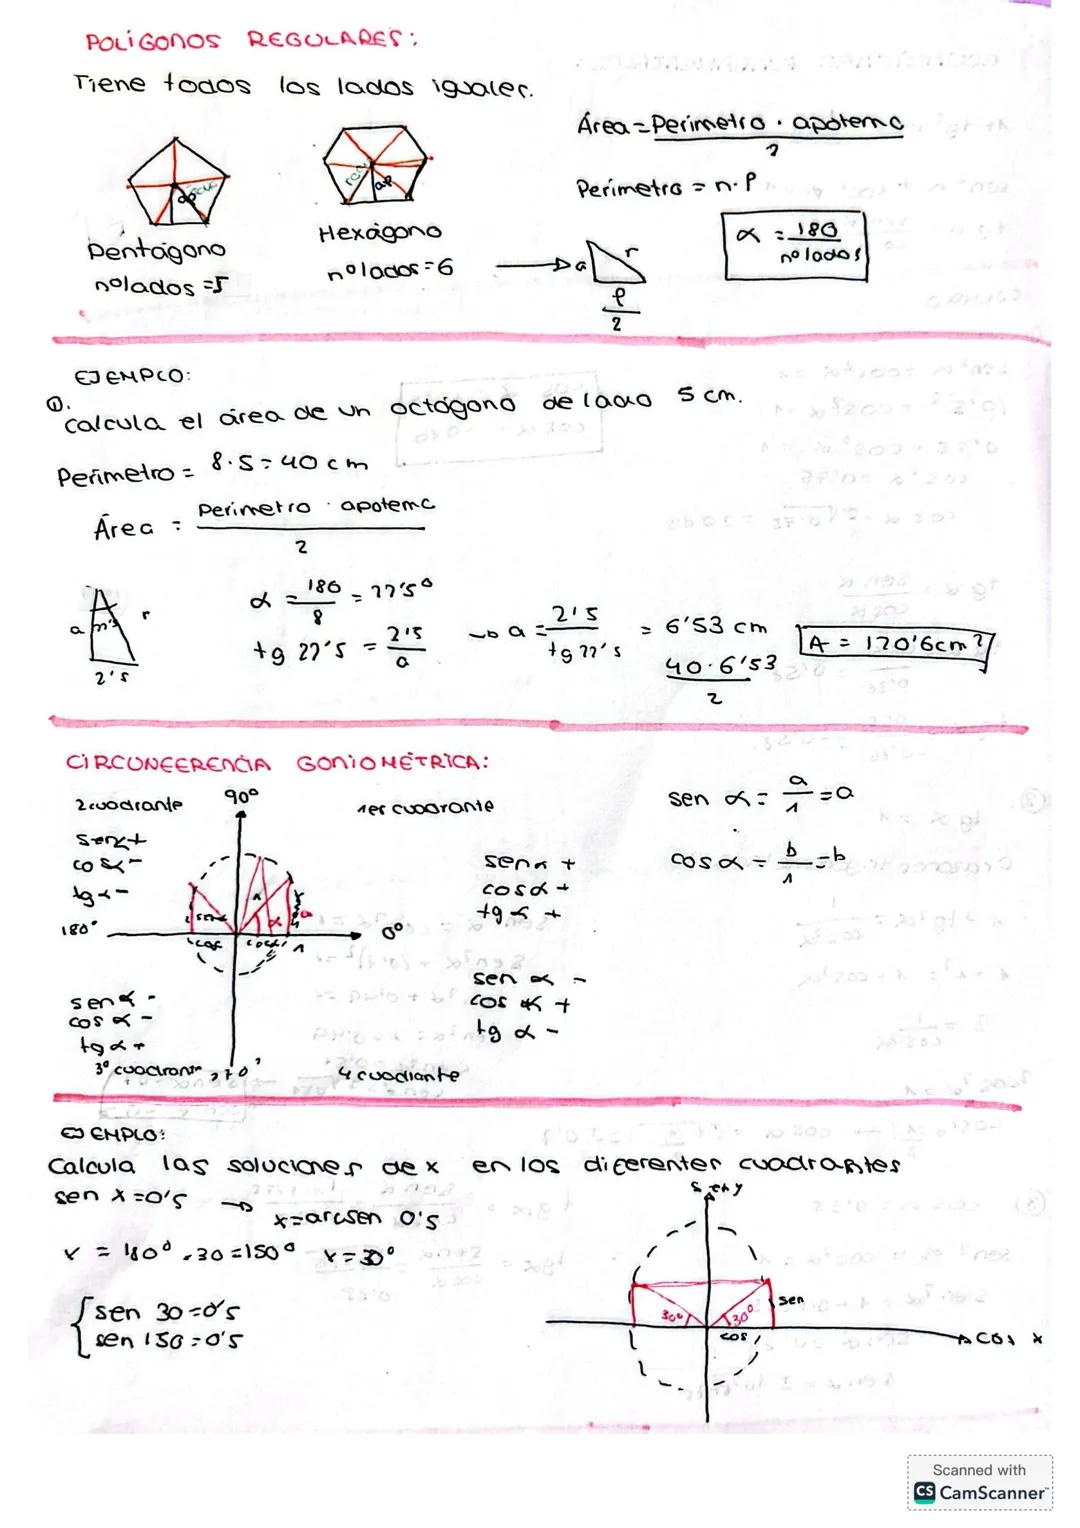 POLÍGONOS REGULARES:
Tiene todos los lados iguales.
Área = Perímetro · apotema
2
Perimetro = n·P
α = 180
nº lados
radio
ap
Pentágono
nº lados = 5
Hexágono
nº lados = 6
a
r
P
2
EJEMPLO:
①. Calcula el área de un octógono de lado 5 cm.
Perímetro = 8·5 = 40 cm
Área = Perimetro · apotema
2
a
r
2'5
α = 180 = 22'5º
8
tg 22'5 = 2'5
a
→ a = 2'5 = 6'53 cm
tg 22'5
40·6'53
2
A = 120'6cm²
CIRCUNFERENCIA GONIOMÉTRICA:
2 cuadrante
90º
1er cuadrante
sen α = a = a
1
cos α = b = b
1
sen α +
cos α -
tg α -
sen α +
cos α +
tg α +
180º
0º
sen
cos
cos α
1
α
sen α -
cos α -
tg α +
3º cuadrante
270º
sen α -
cos α +
tg α -
4 cuadrante
EJEMPLO:
Calcula las soluciones de x en los diferentes cuadrantes
sen x = 0'5 → x = arcsen 0'5
x = 180º - 30 = 150º x = 30º
sen 30 = 0'5
sen 150 = 0'5
sen y
30º
30º
sen
cos
cos x
Scanned with
CS CamScanner